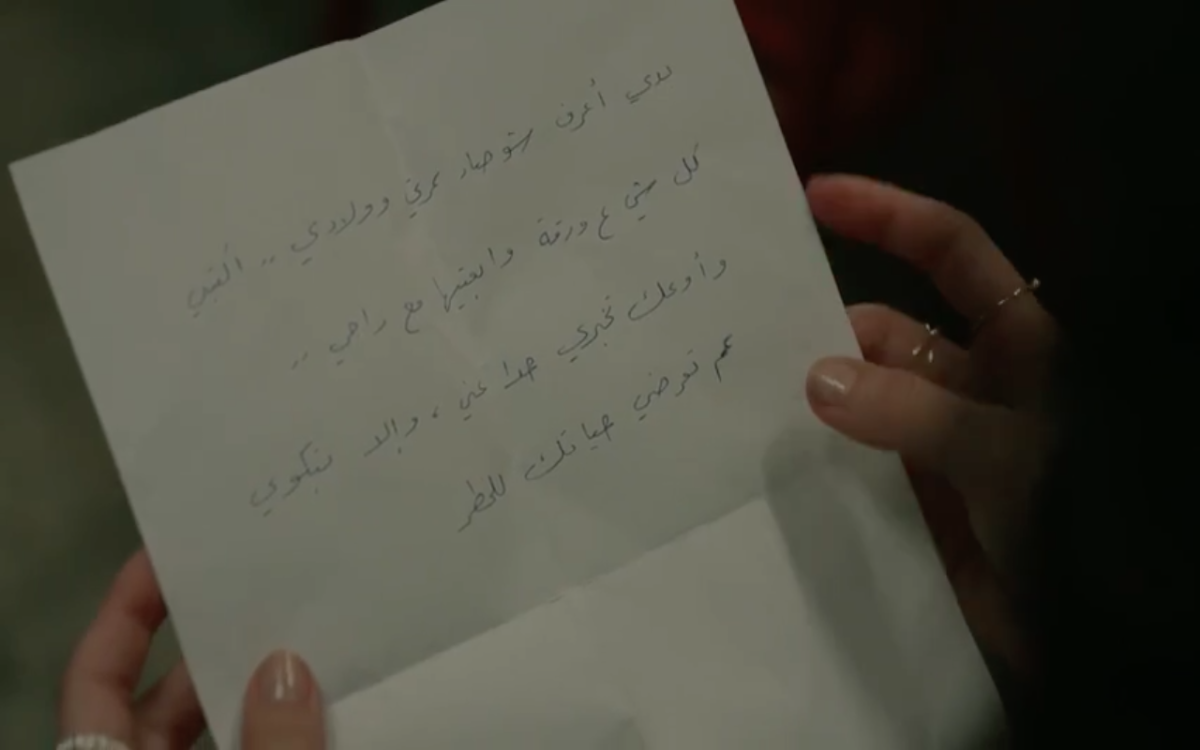 بدي أعرف شو صار بمرتي وولادي .. اكتبي
كل شي ع ورقة وابعتيها مع راجي ..
وأوعك تخبري حدا عني ، وإلا بتكوني
عم تعرضي حياتك للخطر